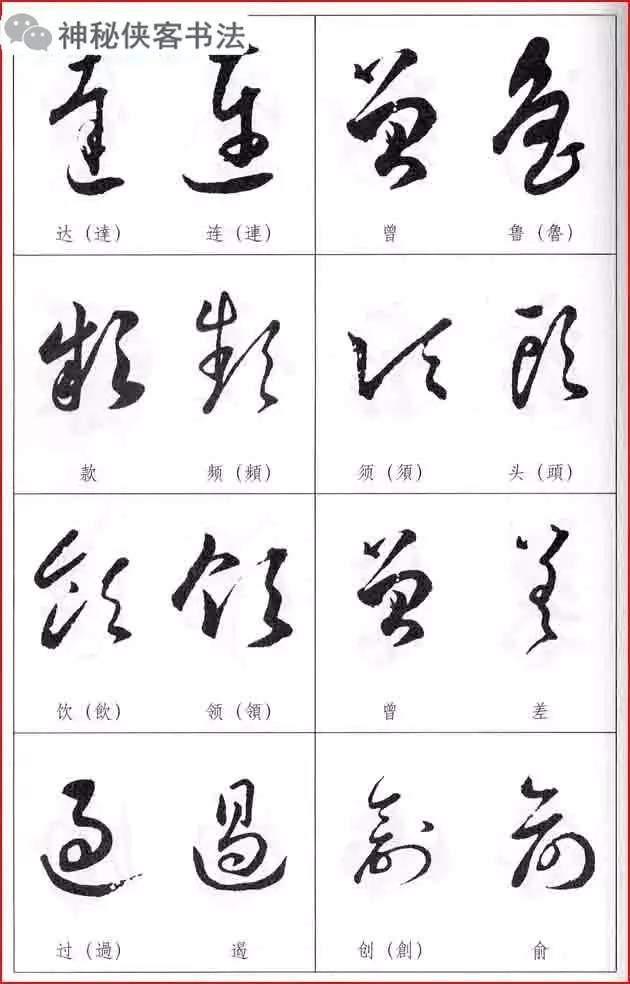 神秘侠客书法
达（達） 连（連） 曾 鲁（魯）
款 频（頻） 须（須） 头（頭）
饮（飲） 领（領） 曾 差
过（過） 遏 创（創） 俞